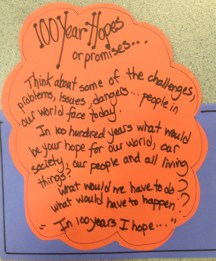 100 Year Hopes
or promises...
Think about some of the challenges,
problems, issues, dangers... people in
our world face today!
In 100 hundred years what would
be your hope for our world, our
society, our people and all living
things?
what would we have to do?
what would have to happen?
"In 100 years I hope..."